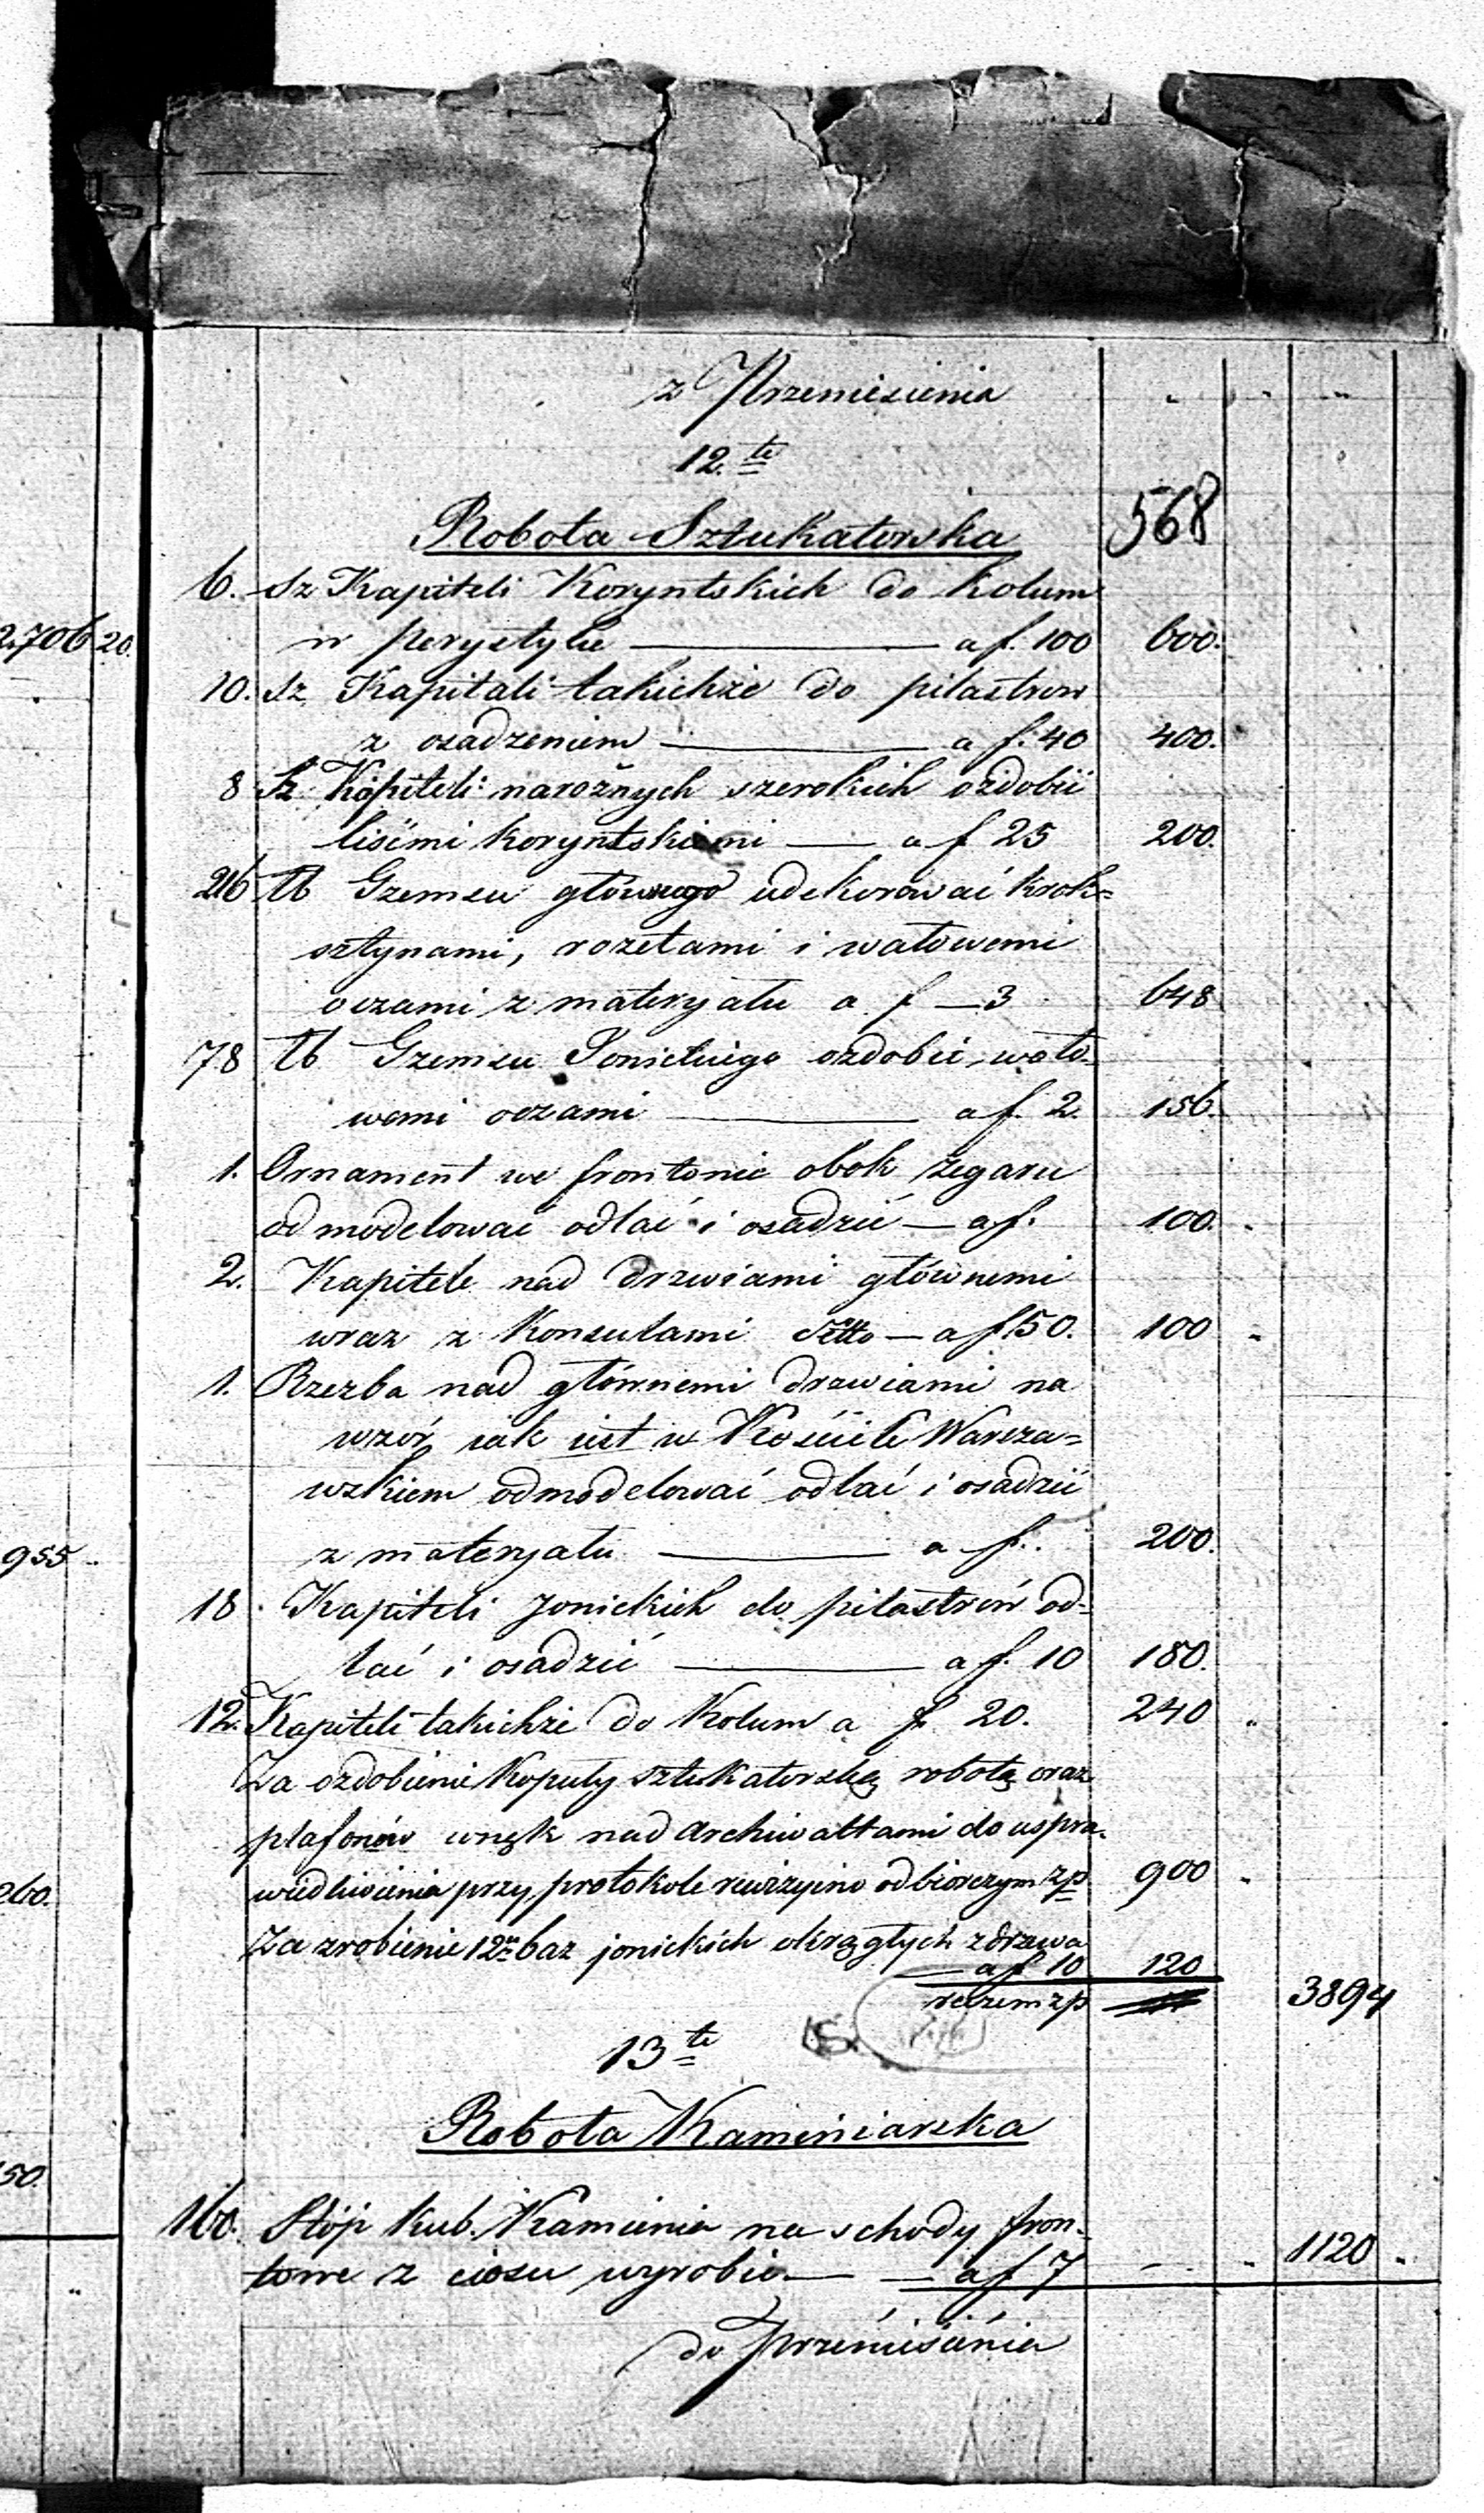 z Przeniesienia
12te
568
Robota Sztukatorska
6. Sz Kapiteli Koryntskich do Kolumn
w perystylu — a f. 100 600.
2.706 20.
10. Sz Kapitali takichże do pilastrow
z osadzeniem — a f. 40 400.
8 Sz Kapiteli narożnych szerokich ozdobić
liśćmi koryntskiemi — a f 25 200.
216 łb Gzemsu głównego udekorować krok=
sztynami, rozetami i wałowemi
oczami z materyału a f — 3 648
78 łb Gzemsu Jonickiego ozdobić wało-
wemi oczami — a f. 2. 156.
1. Ornament we frontonie obok zegaru
odmodelować odlać i osadzić — a f. 100.
2. Kapitele nad drzwiami głównemi
wraz z Konsulami detto — a f 50. 100 "
1. Rzezba nad głównemi drzwiami na
wzór jak jest w Kościele Warsza=
wskiem odmodelować odlać i osadzić
z materyału — a f. 200.
955 "
18. Kapiteli Jonickich do pilastrów od-
lać i osadzić — a f. 10 180.
12. Kapiteli takichże do Kolumn a f 20. 240 "
Za ozdobienie Kopuły sztukatorską robotą oraz
plafonów wnęk nad Archiwoltami do uspra-
wiedliwienia przy protokole rewizyjno odbiorczym zp 900 "
260.
Za zrobienie 12u baz jonickich okrągłych z drzewa
— a f 10 120
razem zp 3894
13te
Robota Kamieniarska
50.
160. Stóp kub. Kamienia na schody fron-
towe z ciosu wyrobić — a f 7 — " 1120 "
do przeniesienia